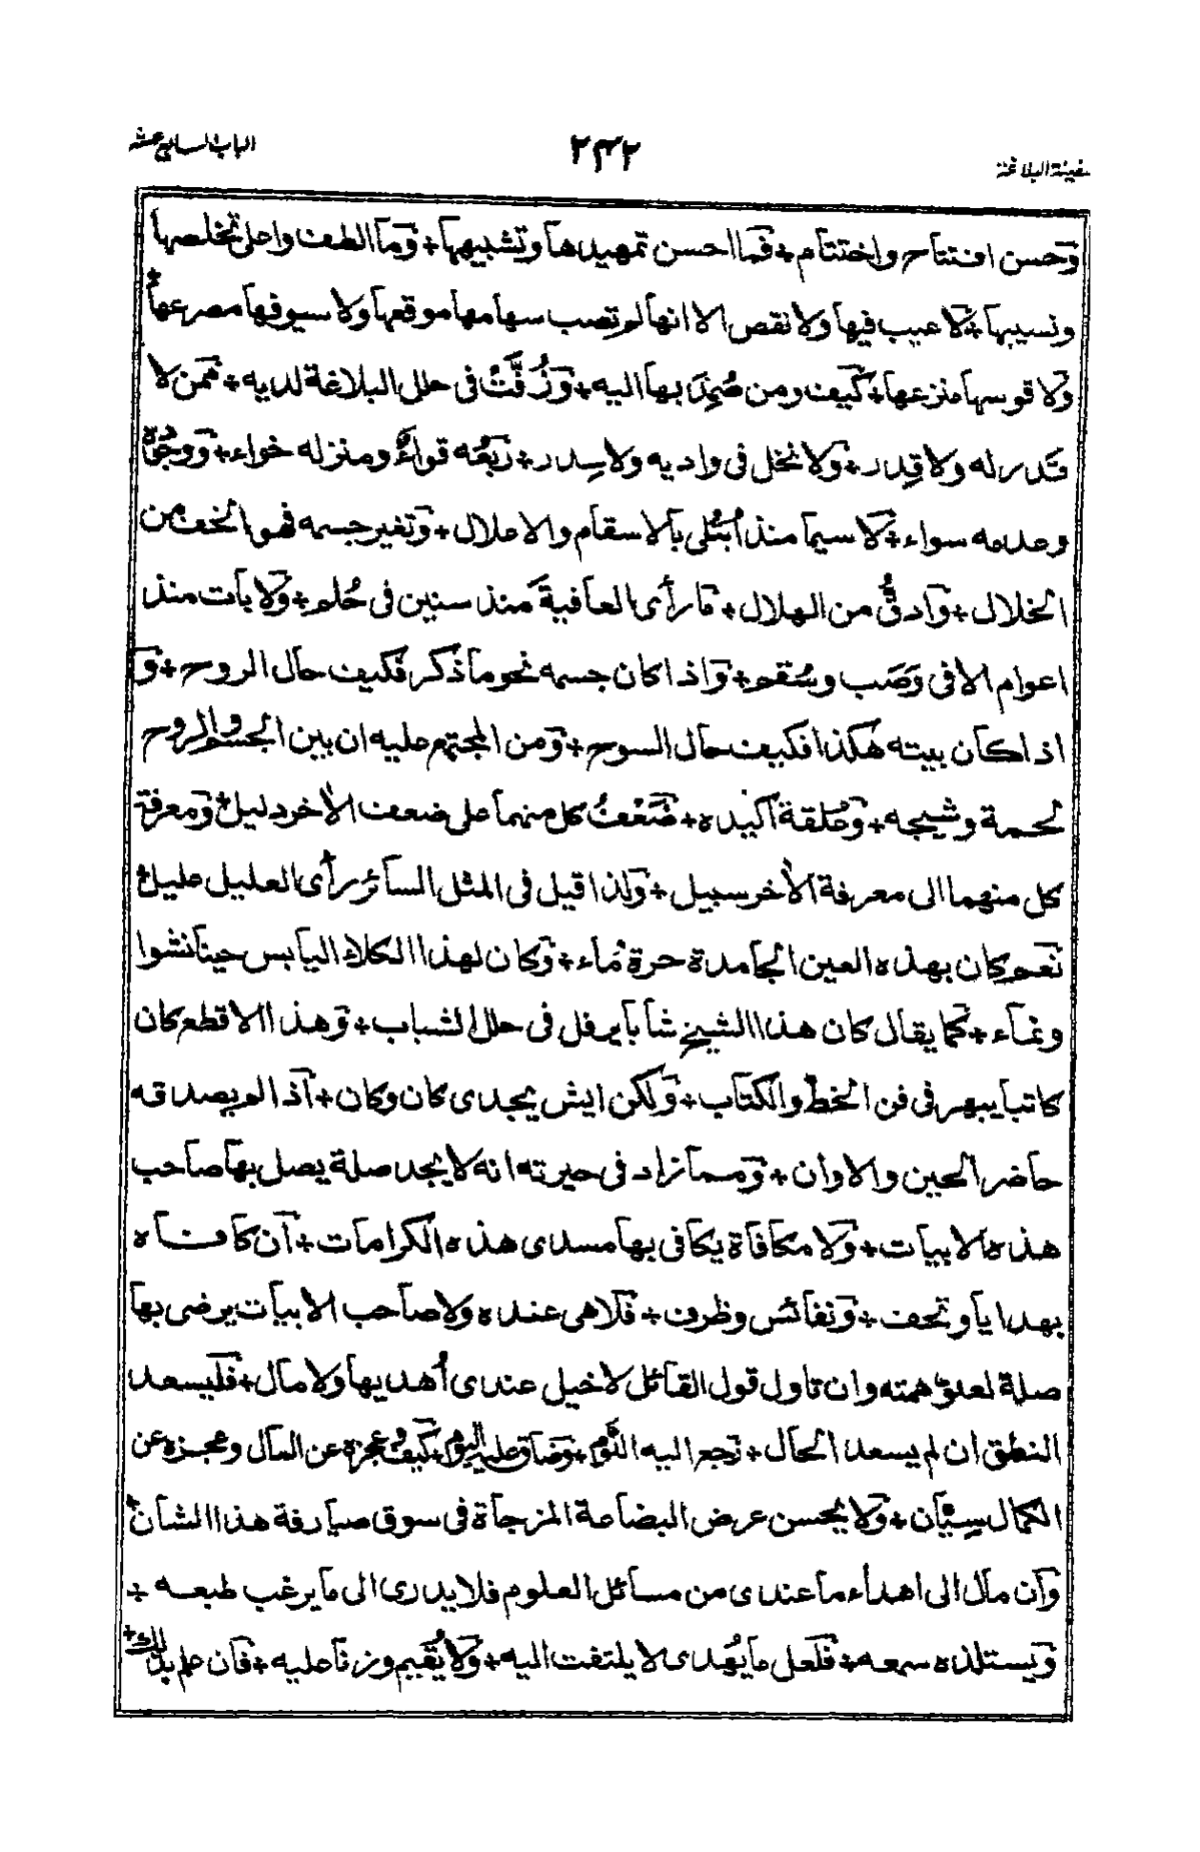 سفينة البلاغة
٢٣٢
الباب السابع عشر
وحسن افتتاح واختتام + فما احسن تمهيدها وتشبيهها + وما الطف واحلى تخلصها
ونسيبها + لا عيب فيها ولا نقص الا انها لم تصب سهامها موقعها ولا سيوفها مصرعها +
ولا قوسها منزعها + كيف ومن صُمِدَ بها اليه + وَزُفَّتْ فى حلل البلاغة لديه + فمن لا
قدر له ولا قِدر + ولا نخل فى واديه ولا سِدر + رَبعُه قواءٌ ومنزله خواء + ووجُودُه
وعدمه سواء + لا سيما منذ اُبتُلى بالاسقام والاعلال + وتغير جسمه فهو اخف من
الخلال + وادقُّ من الهلال + ما رأى العافية منذ سنين فى حُلم + ولا بات منذ
اعوام الا فى وَصَب وسُقم + واذا كان جسمه نحو ما ذكر فكيف حال الروح + و
اذا كان بيته هكذا فكيف حال السوح + ومن المجتمع عليه ان بين الجسم والروح
لحمة وشيجه + وعُلقة اكيده + ضَعْفُ كل منهما على ضعف الاٰخر دليل + ومعرفة
كل منهما الى معرفة الاٰخر سبيل + ولذا قيل فى المثل السائر رأى العليل عليل +
نعم كان بهذه العين الجامدة حرة ماء + وكان لهذا الكلاء اليابس حينا نشوا
ونماء + كما يقال كان هذا الشيخ شابا يرفل فى حلل الشباب + وهذا الاقطع كان
كاتبا يبهر فى فن الخط والكتاب + ولكن ايش يجدى كان وكان + اذا لم يصدقه
حاضر الحين والاوان + ومما زاد فى حيرته انه لا يجد صلة يصل بها صاحب
هذه الابيات + ولا مكافاة يكافى بها مسدى هذه الكرامات + ان كافاه
بهدايا وتحف + ونفائس وظرف + فلا هى عنده ولا صاحب الابيات يرضى بها
صلة لعلو همته وان تاول قول القائل لا خيل عندى اُهديها ولا مال + فليسعد
النطق ان لم يسعد الحال + رجع اليه اللَّوم + وضاق عليه اليوم + كيف وعجزه عن المال وعجزه عن
الكمال سِيّان + ولا يحسن عرض البضاعة المزجاة فى سوق صيارفة هذا الشان +
وان مال الى اهداء ما عندى من مسائل العلوم فلا يدرى الى ما يرغب طبعه +
ويستلذه سمعه + فلعل ما يُهدى لا يلتفت اليه + ولا يُقيم وزنا عليه + فان علم بذلك +